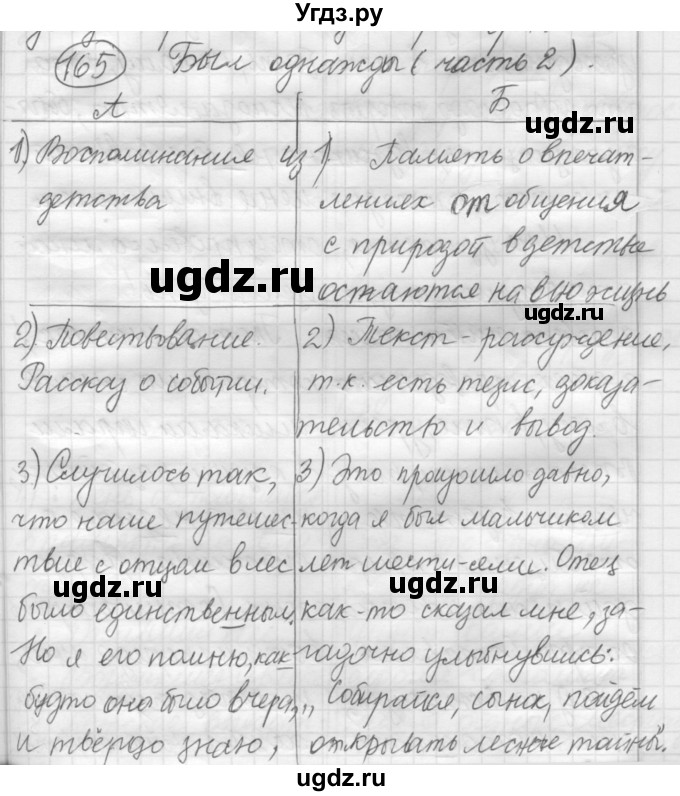 Угдз.ру
165 Был однажды (часть 2).
А
Б
1) Воспоминания из
детства
1) Память о впечат-
лениях от общения
с природой в детстве
остаются на всю жизнь
2) Повествование.
Рассказ о событии.
2) Текст - рассуждение,
т.к. есть тезис, доказа-
тельство и вывод.
3) Случилось так,
что наше путешес-
твие с отцом в лес
было единственным.
Но я его помню, как-
будто оно было вчера,
и твёрдо знаю,
3) Это произошло давно,
когда я был мальчиком
лет шести-семи. Отец
как-то сказал мне, за-
гадочно улыбнувшись:
„Собирайся, сынок, пойдём
открывать лесные тайны".
ugdz.ru
ugdz.ru
ugdz.ru
ugdz.ru
ugdz.ru
ugdz.ru
ugdz.ru